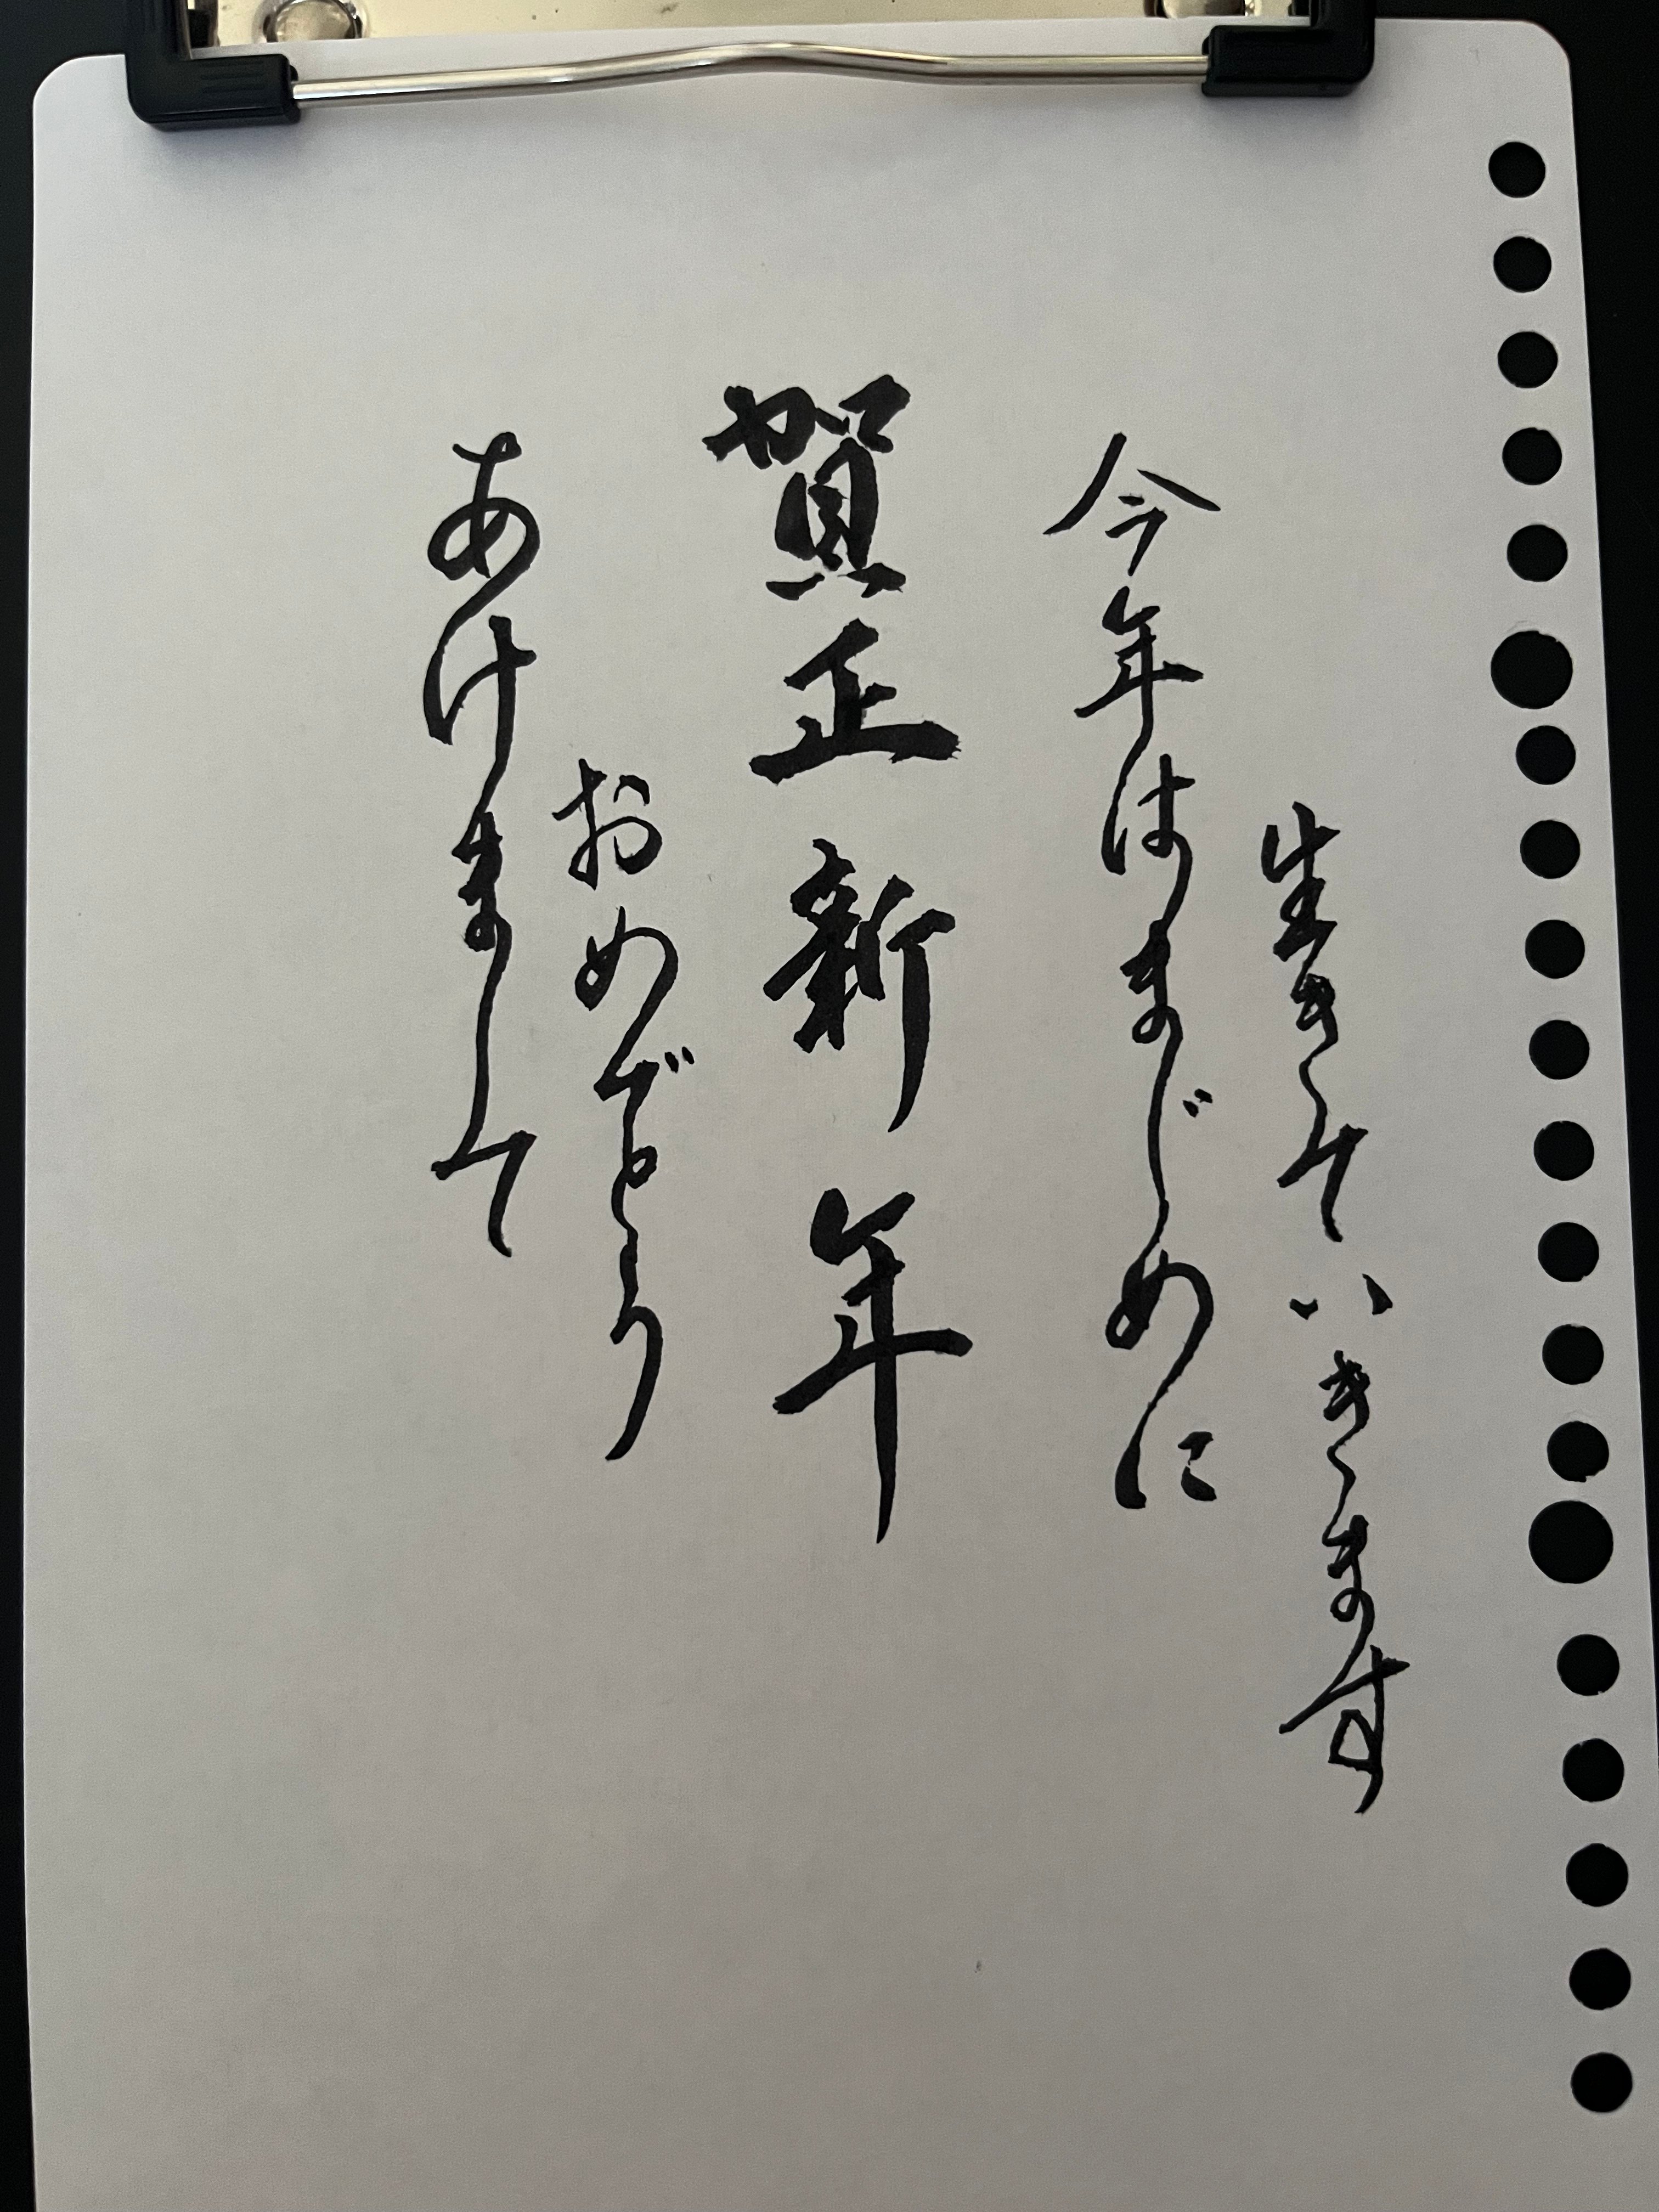 あけまして
おめでとう
賀正新年
今年はまじめに
生きていきます